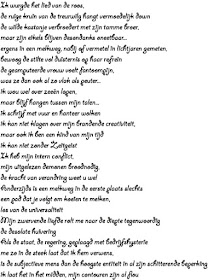 Ik wurgde het lied van de roos,
de ruige kruin van de treurwilg hangt vermoedelijk down
de wilde kastanje verbroedert met zijn tamme broer,
maar zijn eikels blijven desondanks oneetbaar...
ergens in een melkweg, nabij of vermetel in lichtjaren gemeten,
beweeg de stilte vol duisternis op haar refrein
de gecomputeerde vrouw voelt fantoompijn,
was ze dan ook al zo vlak als geuter...
Ik wou wel over zeeën lopen,
maar blijf hangen tussen mijn tolen...
Ik schrijf met vuur en flonker wolken
Ik kan niet klagen over mijn brandende creativiteit,
maar ook ik ben een kind van mijn tijd
Ik kan niet zonder Zeitgeist
Ik heb mijn intern conflict,
mijn uitgelezen demonen broodnodig,
de kracht van verandering weet u wel
Anderzijds is een melkweg in de eerste plaats slechts
een god dat je volgt om keelen te melken,
los van de universaliteit
Mijn zwervende liefde reit me naar de diepte tegenwoordig
de desolate huivering
Als de staat, de regering, geplaagd met bedrijfshysterie
me zo in de steek laat dat ik hem verwens,
is de subjectieve mens dan de hoogste entiteit in al zijn schitterende beperking
Ik laat het in het midden, mijn centauren zijn al flou